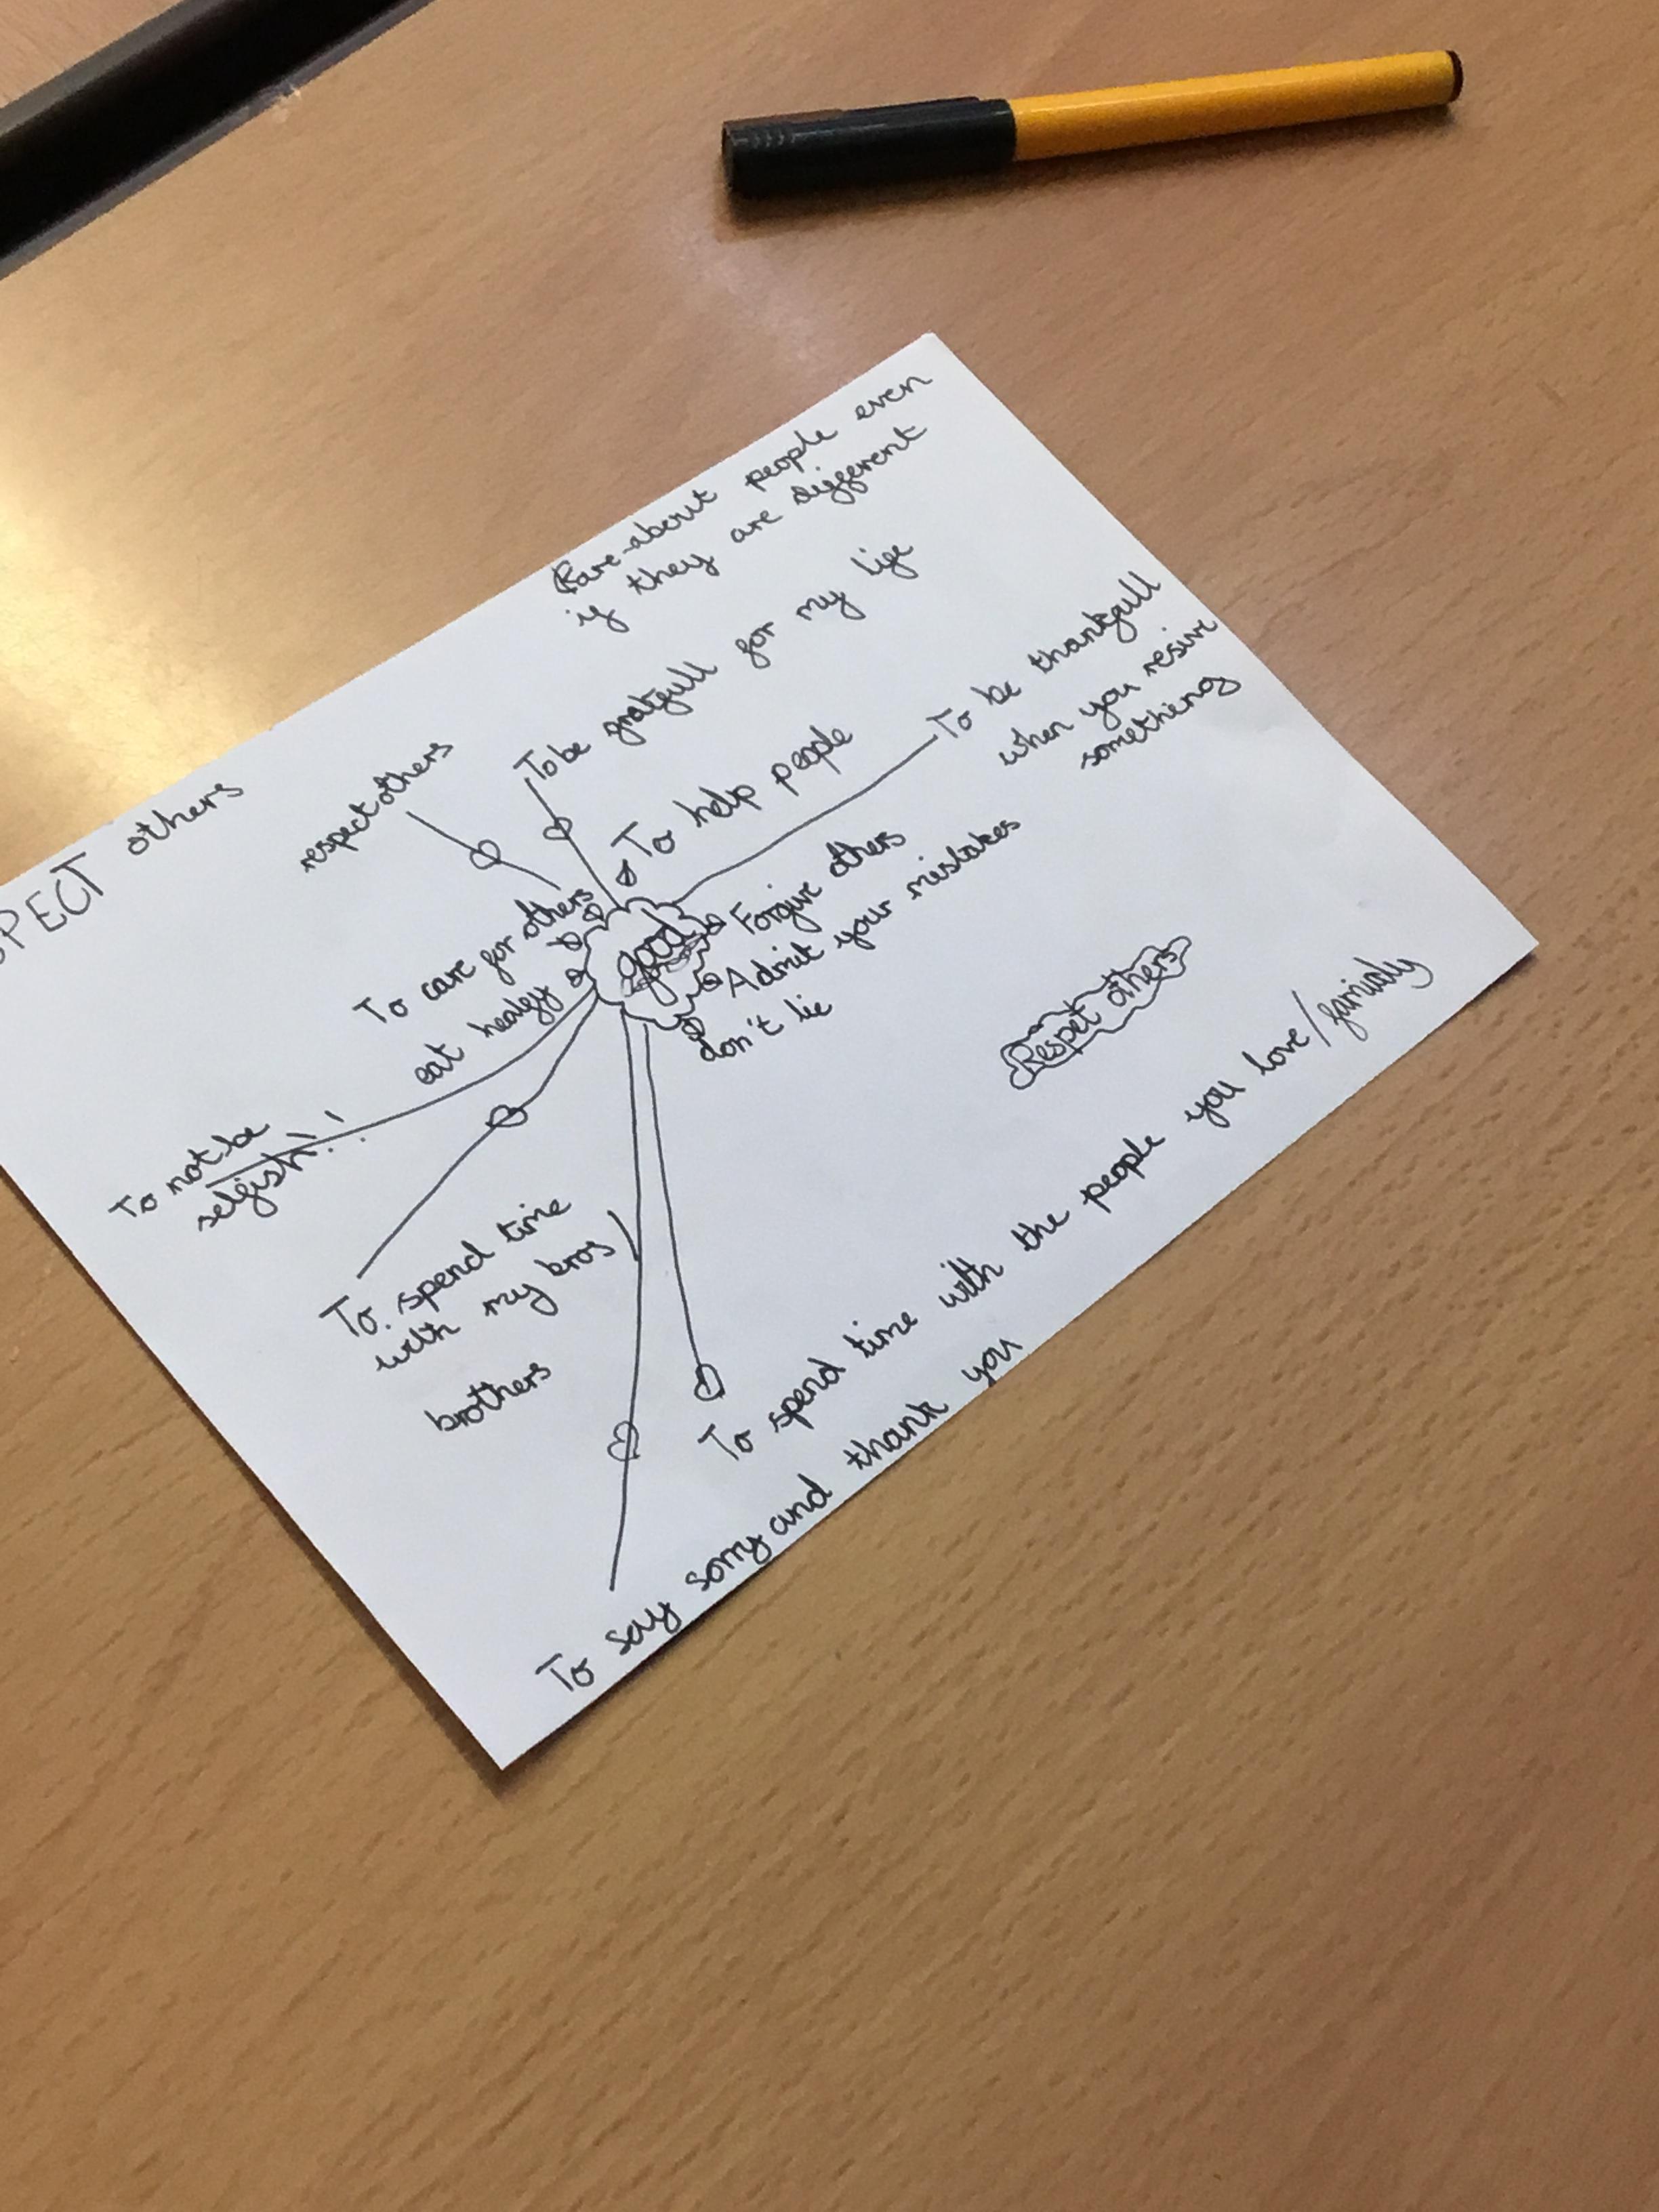 Care about people even
if they are different
To be gratfull for my life
To be thankfull
when you resive
something
To help people
respect others
PECT others
To care for others
good
Forgive others
Admit your mistakes
don't lie
eat healgy
To not be
selfish!!
Respet others
To spend time
with my bros/
brothers
To spend time with the people you love/famialy
To say sorry and thank you